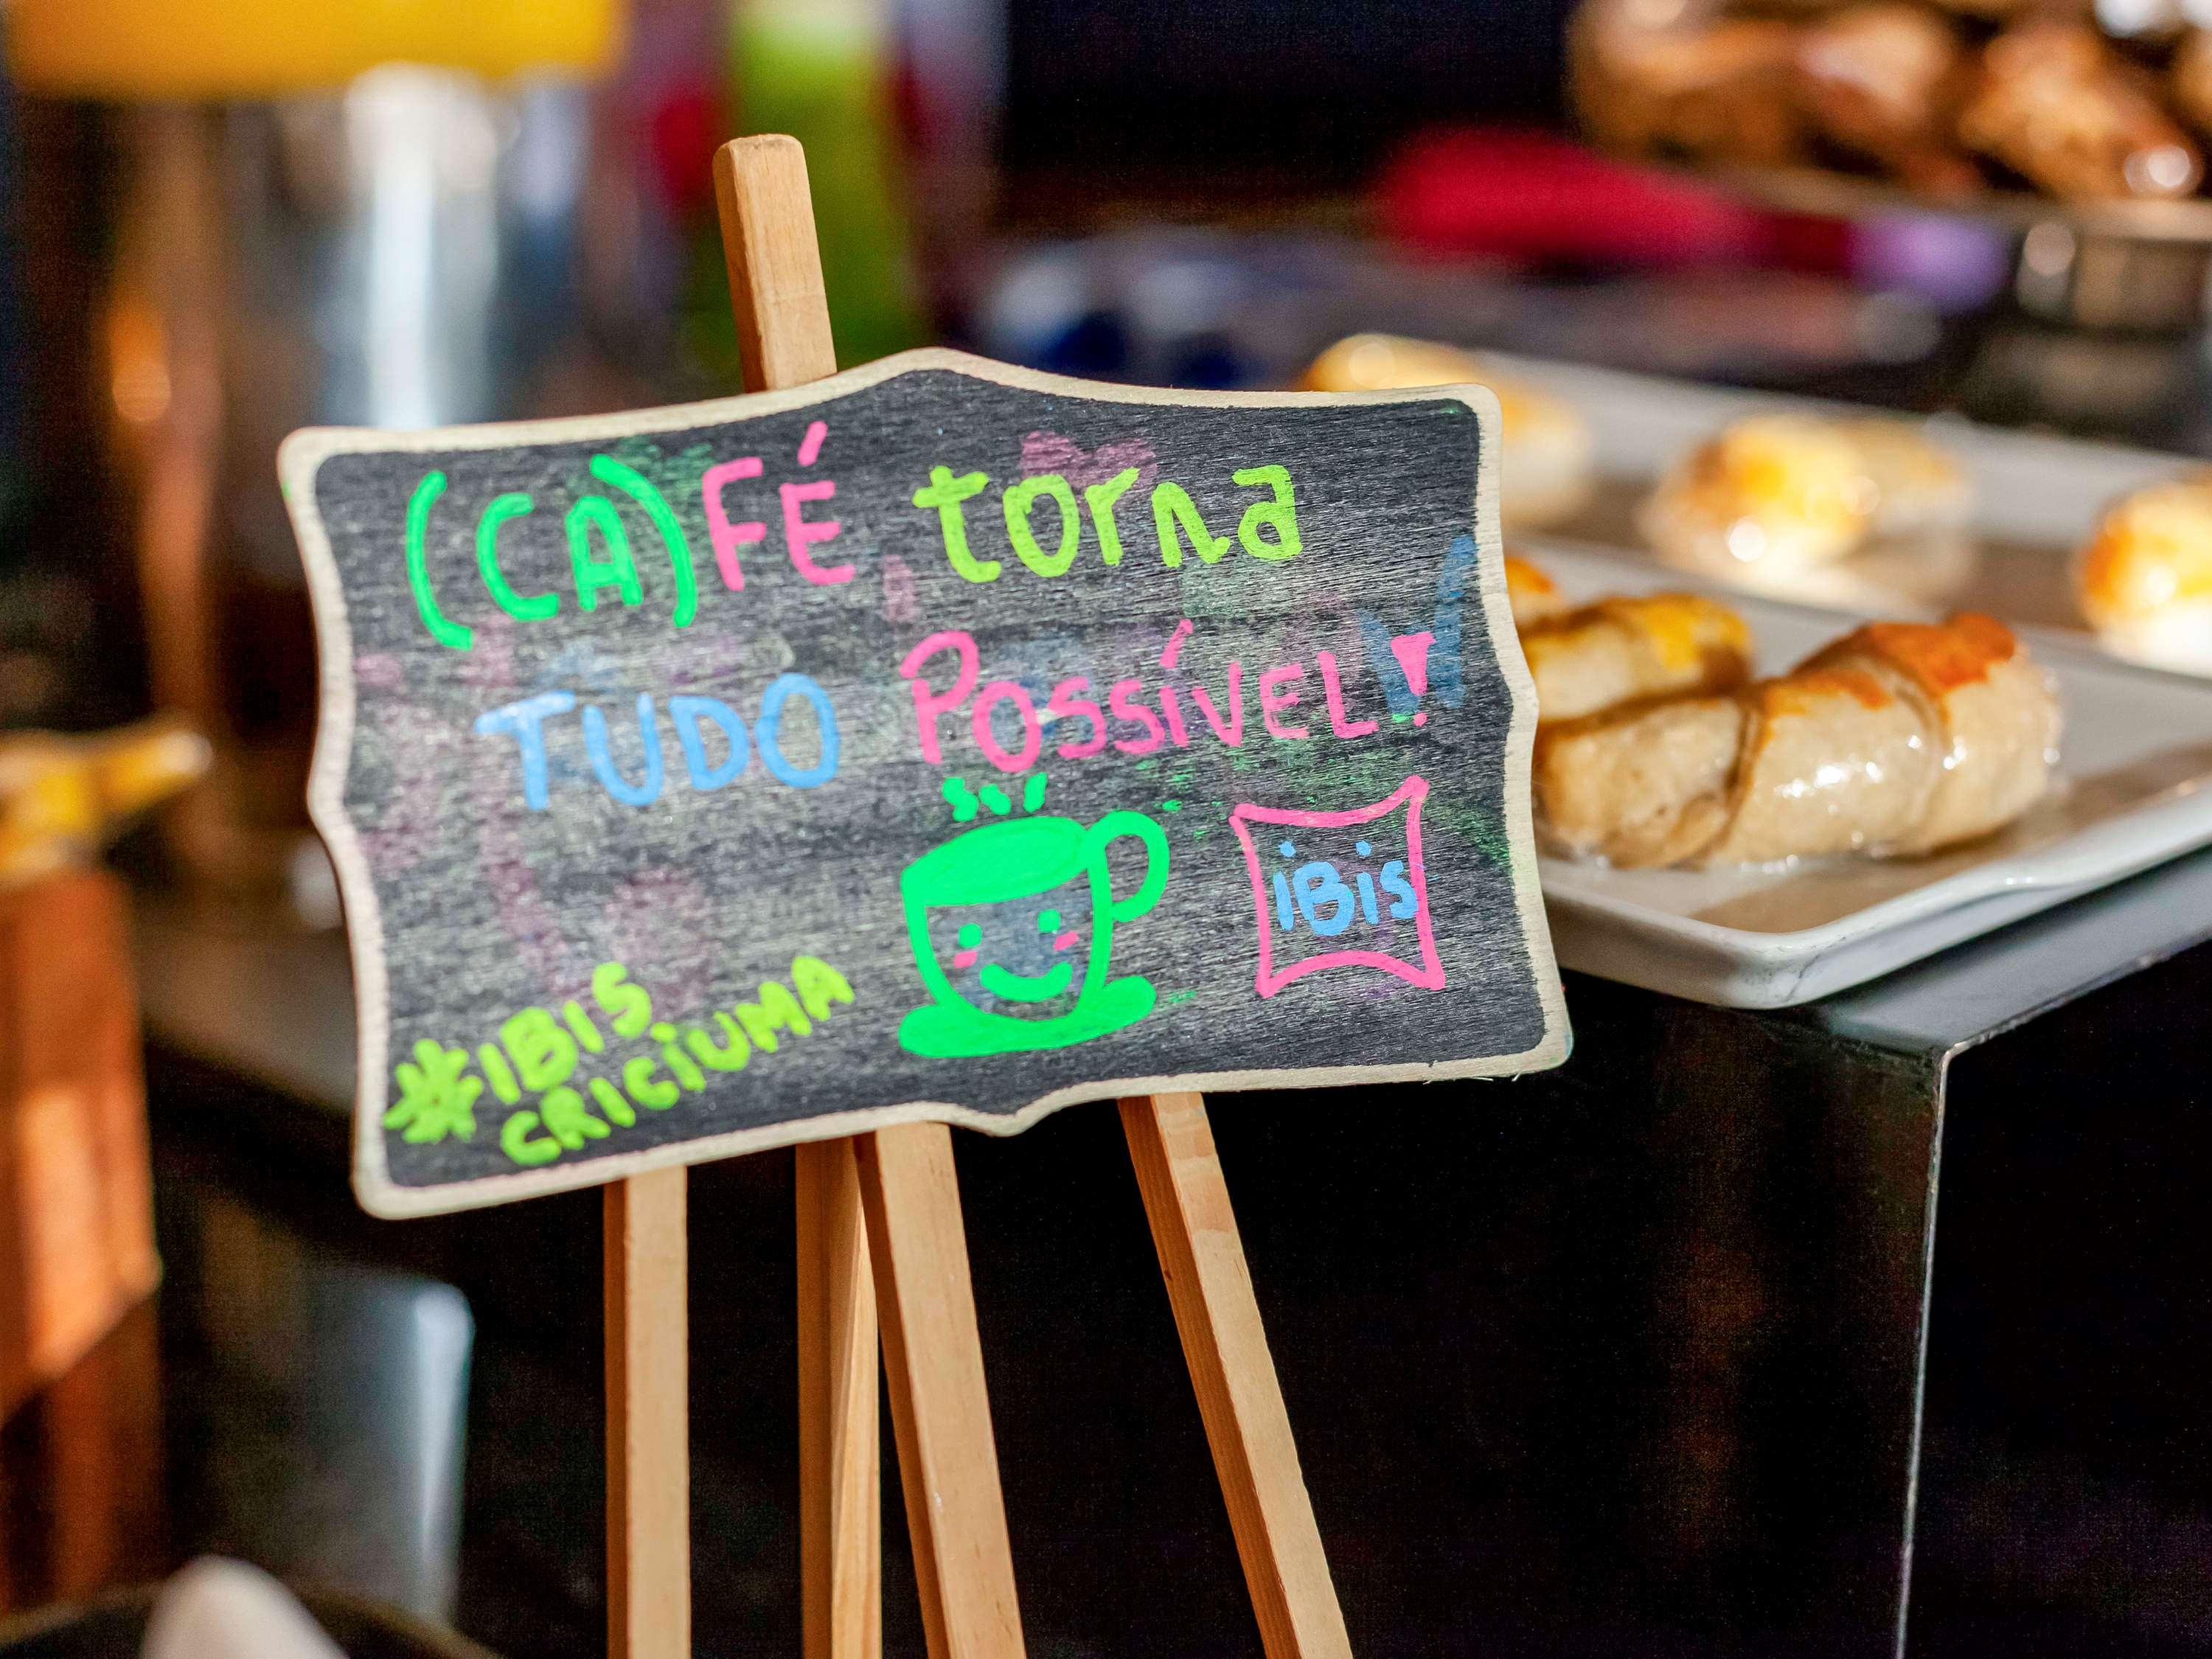 (CA)FÉ torna
TUDO POSSÍVEL!
iBis
*IBIS
CRICIUMA